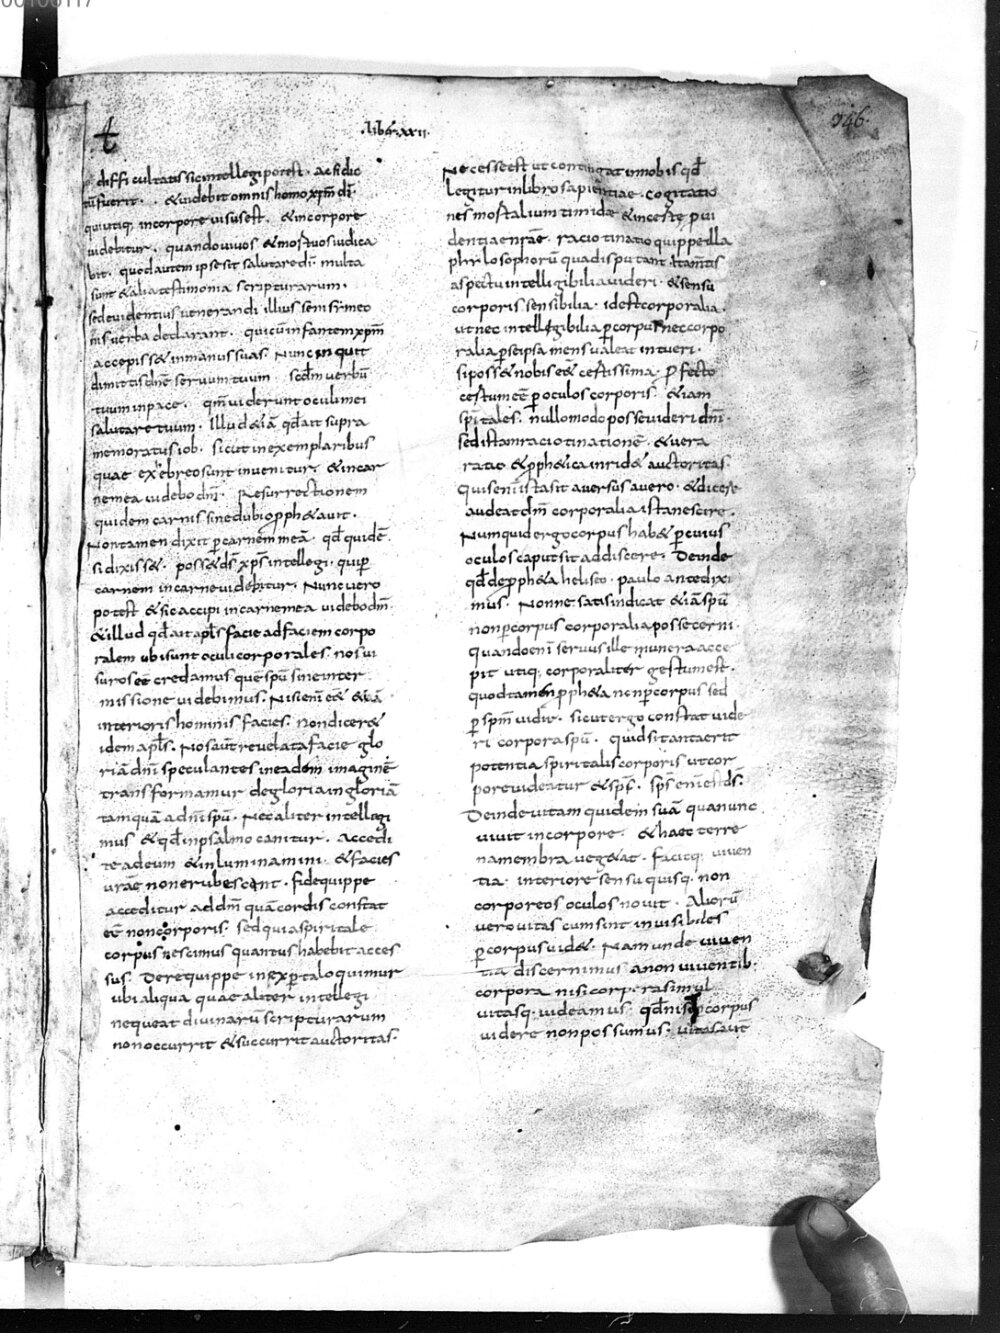 00106117
Lib XXII
946.
difficultatis sic intellegi potest. ac si dic
tū fuerit. & videbit omnis homo xp̄m dī.
qui utiq; in corpore visus est. & in corpore
videbitur. quando vivos & mortuos iudica
bit. quod autem ipse sit salutare dī. multa
sunt & alia testimonia scripturarum.
sed evidentius venerandi illius senis symeo
nis verba declarant. qui cū infantem xp̄m
accepisset in manus suas. Nunc inquit
dimittis dn̄e servum tuum scdm verbū
tuum in pace. qm̄ viderunt oculi mei
salutare tuum. Illud & iā qd̄ ait supra
memoratus iob. sicut in exemplaribus
quae ex ebreo sunt invenitur. & in car
ne mea videbo dm̄. Resurrectionem
quidem carnis sine dubio pph&avit.
Non tamen dixit p carnem meā. qd̄ quidē
si dixiss&. poss& ds̄ xps̄ intellegi. qui p
carnem in carne videbitur. Nunc vero
potest & sic accipi in carne mea videbo dm̄.
& illud qd̄ ait apls̄ facie ad faciem corpo
ralem ubi sunt oculi corporales. nos vi
suros eē credamus quē spū sine inter
missione videbimus. Nisi enī eēt &iā
interioris hominis facies. non dicer&
idem apls̄. Nos aut̄ revelata facie glo
riā dn̄i speculantes in eadem imaginē
transformamur de gloria in gloriā
tamquā a dn̄i spū. Nec aliter intellegi
mus & qd̄ in psalmo canitur. Accedi
te ad eum & inluminamini. & facies
vrāe non erubescent. fide quippe
acceditur ad dm̄ quā cordis constat
eē non corporis. sed quia spiritale
corpus nescimus quantus habebit acces
sus. De re quippe inexperta loquimur
ubi aliqua quae aliter intellegi
nequeat divinarū scripturarum
non occurrit & succurrit auctoritas.
Necesse est ut contingat in nobis qd̄
legitur in libro sapientiae. cogitatio
nes mortalium timidae & incertę pvi
dentiae nrāe. ratiotinatio quippe illa
philosophorū qua disputant
aspectu intelligibilia videri. & sensu
corporis sensibilia. id est corporalia.
ut nec intellegibilia p corpus nec corpo
ralia p se ipsa mens valeat intueri.
si poss& nobis eē certissima. pfecto
certum eēt p oculos corporis. &iam
spitales. nullo modo posse videri dm̄.
sed istam ratiotinationē. & vera
ratio & pph&ica inrid& auctoritas.
Quis enī ista sit aversus a vero. & dicere
audeat dm̄ corporalia ista nescire.
Numquid ergo corpus hab& p cuius
oculos caput sit addiscere. Deinde
qd̄ de pph&a heliseo. paulo ante dixi
mus. Nonne satis indicat &iā spū
non p corpus corporalia posse cerni.
quando enī servus ille munera acce
pit utiq; corporaliter gestum est.
quod tamen pph&a non p corpus sed
p spm̄ vidit. sicut ergo constat vide
ri corpora spū. quid si tanta erit
potentia spiritalis corporis ut cor
pore videatur & sps̄. sps̄ enī est ds̄.
Deinde vitam quidem suā qua nunc
vivit in corpore. & haec terre
na membra veg&at. facitq; viven
tia. interiore sensu quisq; non
corporeos oculos novit. Aliorū
vero vitas cum sint invisibiles
p corpus vid&. Nam unde viven
tia discernimus a non viventib.
corpora nisi corpora simul
vitasq. videamus. qd̄ nisi p corpus
videre non possumus. vitas aut